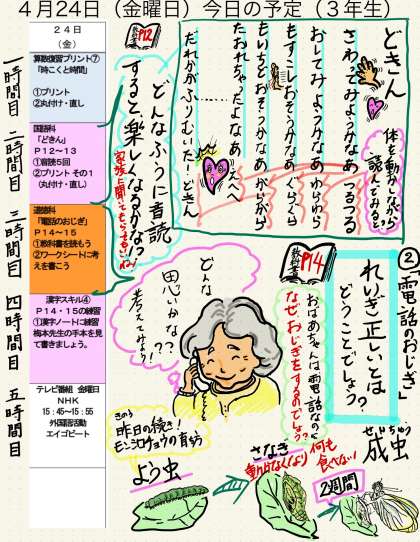 4月24日（金曜日）今日の予定（3年生）
24日
（金）
一時間目
算数復習プリント⑦
「時こくと時間」
①プリント
②丸付け・直し
二時間目
国語科
「どきん」
P12～13
①音読5回
②プリント その1
（丸付け・直し）
三時間目
道徳科
「電話のおじぎ」
P14～15
①教科書を読もう
②ワークシートに考えを書こう
四時間目
漢字スキル④
P14・15の練習
①漢字ノートに練習
梅本先生の手本を見て書きましょう。
五時間目
テレビ番組 金曜日
NHK
15：45～15：55
外国語活動
エイゴビート
教科書
P12
どきん
さわってみようかなあ つるつる
おしてみようかなあ ゆらゆら
もすこしおそうかなあ ぐらぐら
もいちどおそうかなあ がらがら
たおれちゃったよなあ えへへ
だれかがふりむいた！ どきん
体を動かしながら
読んでみると、
どんなふうに音読
すると、楽しくなるかな！？
家族に聞いてもらうもいいね
教科書
P14
②「電話のおじぎ」
れいぎ正しいとは
どうことでしょう？
おばあちゃんは電話なのに
なぜ、おじぎをするのでしょう？
どんな
思いかな？？
考えてみよう！
きのう
昨日の続き！
モンシロチョウの育ち
よう虫
さなぎ
動けなくなり
何も
食べない！
2週間
せいちゅう
成虫